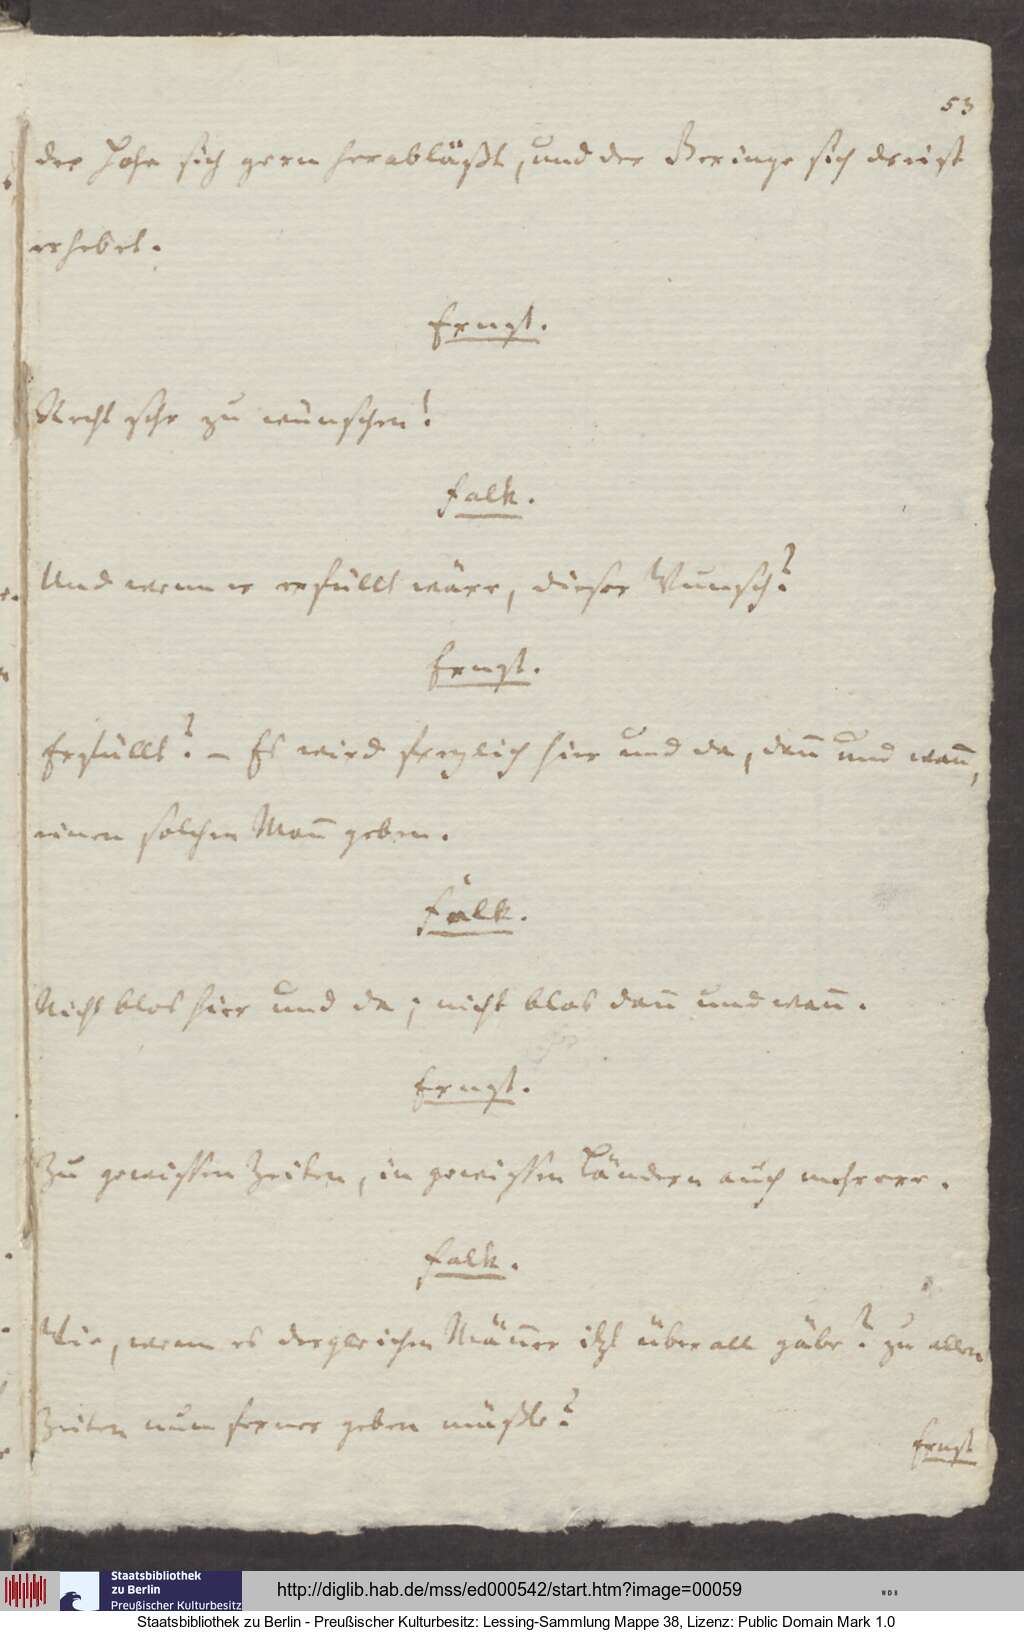 53
der Hohe sich gern herabläßt, und der Geringe sich dreist
erhebet.
Ernst.
Recht sehr zu wünschen!
Falk.
Und wenn er erfüllt wäre, dieser Wunsch?
Ernst.
Erfüllt? – Es wird freylich hier und da, dann̄ und wann̄,
einen solchen Mann̄ geben.
Falk.
Nicht blos hier und da; nicht blos dann̄ und wann̄.
Ernst.
Zu gewissen Zeiten, in gewissen Ländern auch mehrere.
Falk.
Wie, wenn es dergleichen Männer itzt überall gäbe? zu allen
Zeiten nun ferner geben müßte?
Ernst
Staatsbibliothek
zu Berlin
Preußischer Kulturbesitz
http://diglib.hab.de/mss/ed000542/start.htm?image=00059
WDB
Staatsbibliothek zu Berlin - Preußischer Kulturbesitz: Lessing-Sammlung Mappe 38, Lizenz: Public Domain Mark 1.0